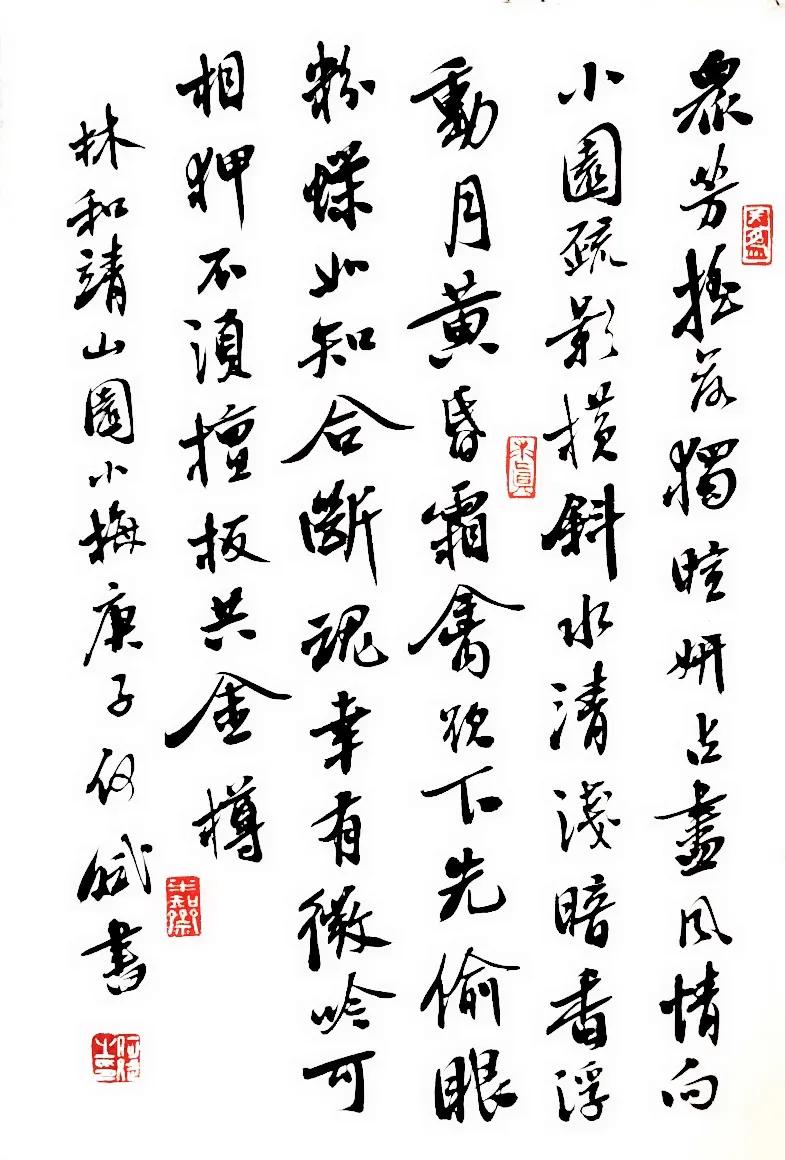 眾芳搖落獨暄妍占盡風情向
小園疏影橫斜水清淺暗香浮
動月黃昏霜禽欲下先偷眼
粉蝶如知合斷魂幸有微吟可
相狎不須檀板共金樽
林和靖山園小梅庚子書